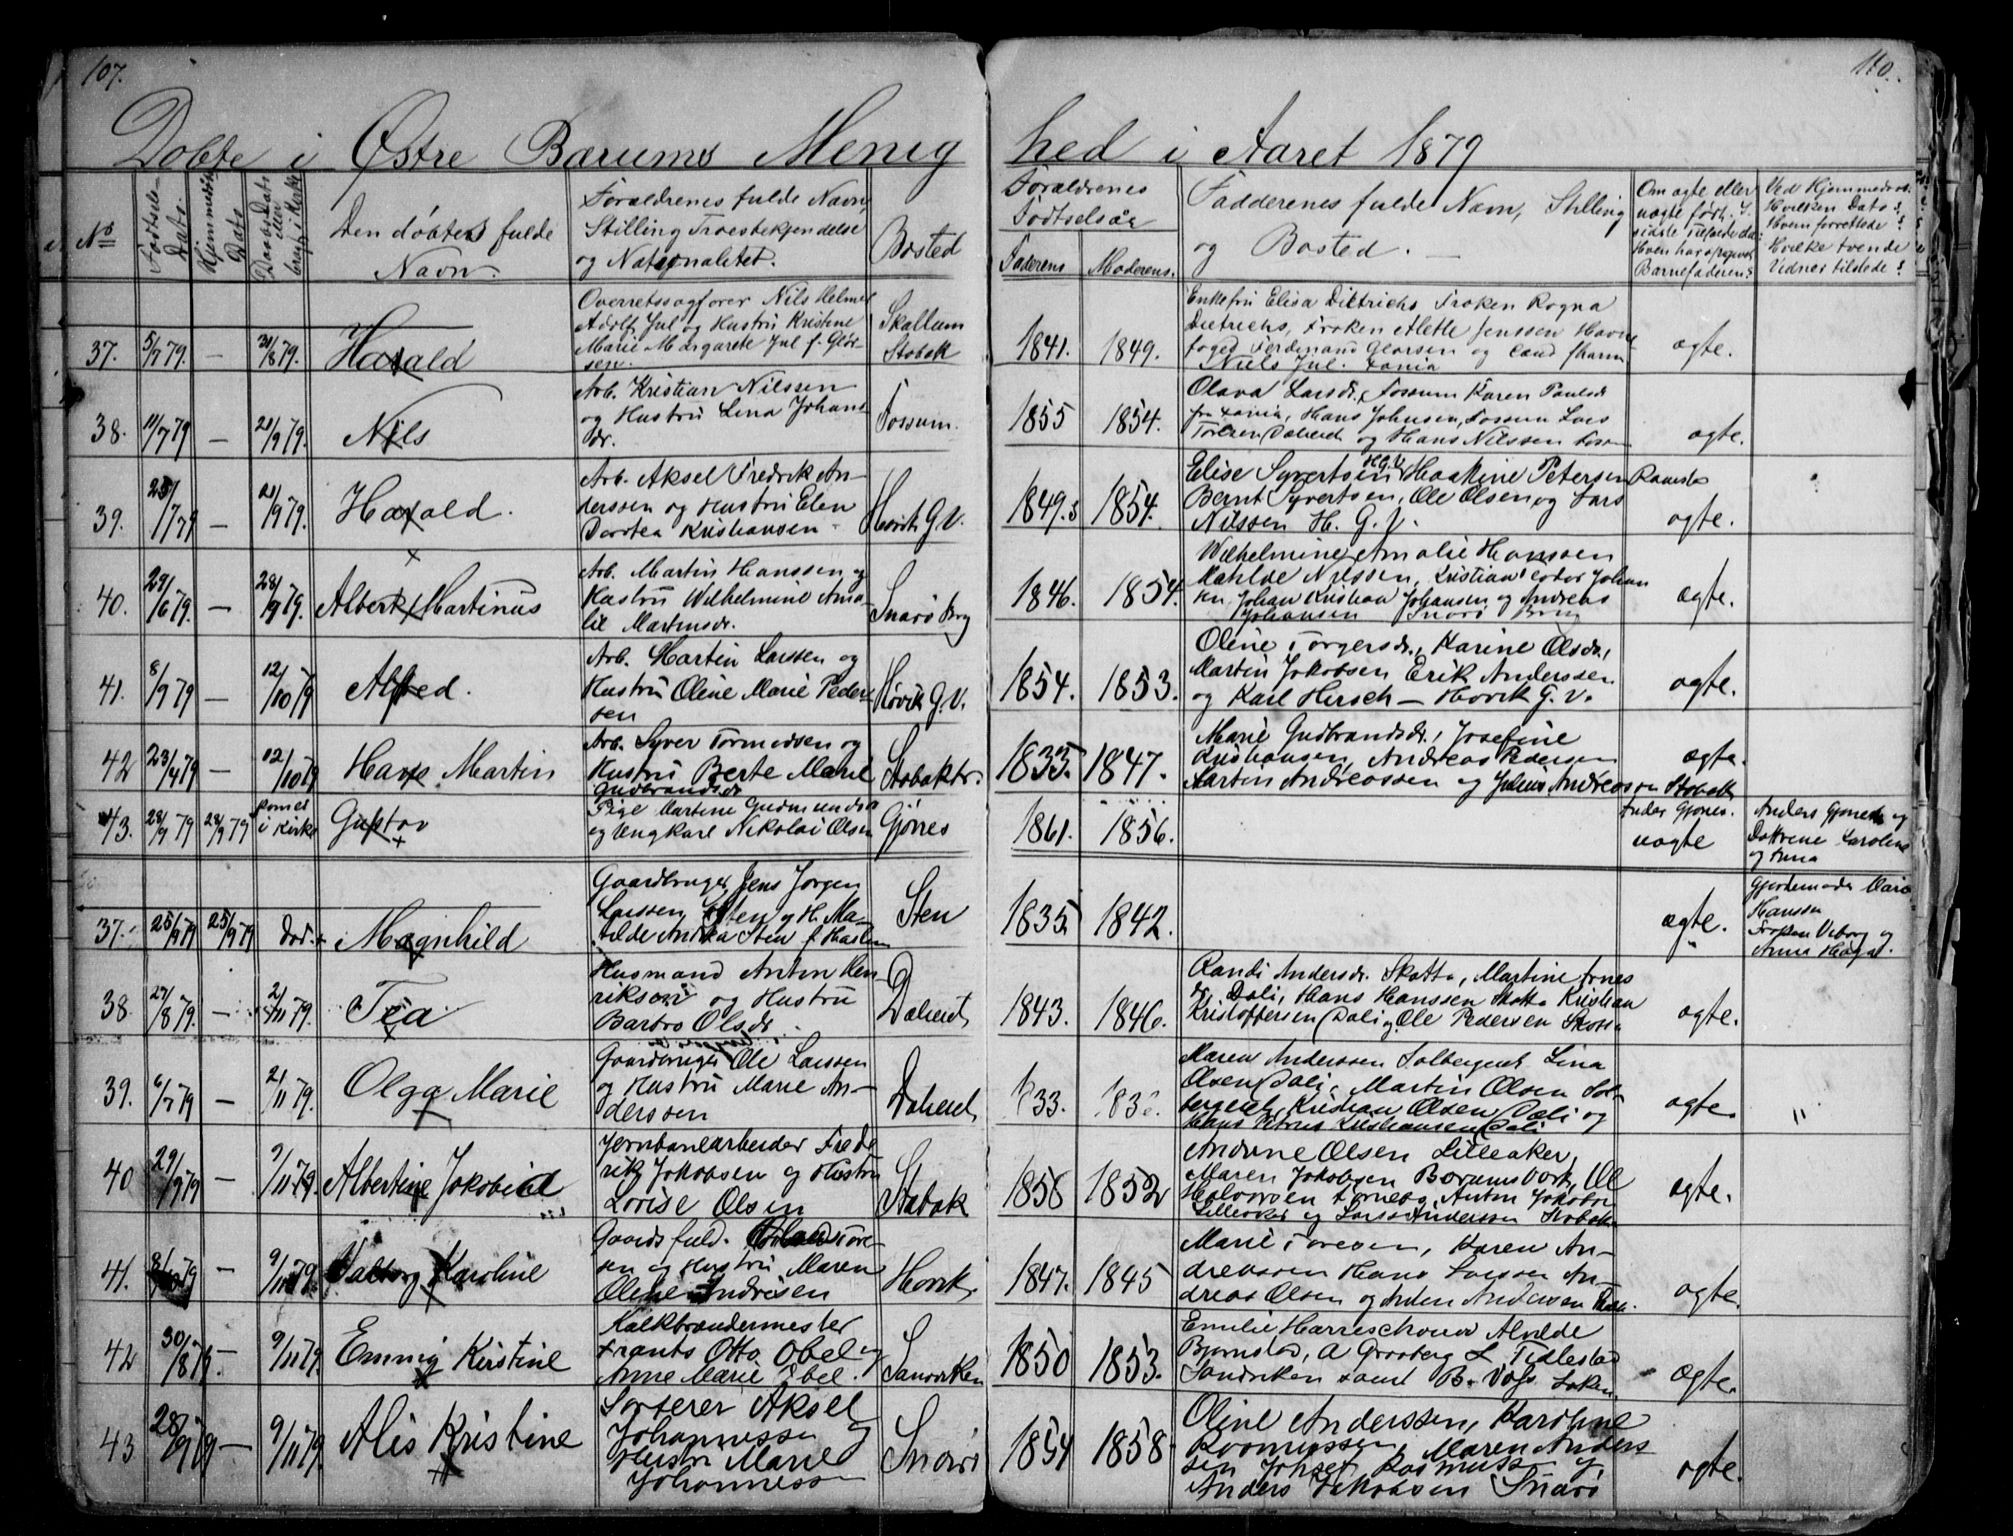 107.
110.
Døbte i Østre Bærums Menig
hed i Aaret 1879
No
Fødsels-
Dato.
Hjemmedøbt
Dato
Daabs Dato
eller
bragt i Kirke
Den døbtes fulde
Navn.
Forældrenes fulde Navn,
Stilling Troesbekjendelse
og Nationalitet.
Bosted
Forældrenes
Fødselsaar
Faderens
Moderens.
Fadderenes fulde Navn, Stilling
og Bosted.
Om ægte eller
uægte født. I
sidste Tilfælde
Hvem har opgivet
Barnefaderen?
Ved Hjemmedaab:
Hvilken Dato?
Hvem forrettede?
Hvilke tvende
Vidner tilstede?
37. 5/7 79. — 31/8 79. Harald
Overretssagfører Nils Helmer
Adolf Jul og Hustru Kristine
Marie Margarete Jul f. Glør-
sen.
Skallum
Stabæk
1841. 1849.
Enkefru Elisa Dietrichs Frøken Rogna
Dietrichs, Frøken Alette Jenssen Havne
foged Ferdinand Glørsen og Cand
Niels Jul.
ægte.
38. 11/7 79 — 21/9 79. Nils
Arb. Kristian Nilssen
og Hustru Lina Johans
dr.
Fossum.
1855 1854.
Olava Larsdr, Fossum Karen Paulsd
Hans Johnsen, Fossum Lars
og Hans Nilssen
ægte.
39. 23/7 79 — 21/9 79. Harald.
Arb. Aksel Fredrik An-
derssen og Hustru Elen
Dortea Kristiansen
Høvik G.V.
1849. 1854.
Elise Syvertsen H.G.V. Haakine Petersen
Bernt Syvertsen, Ole Olsen og Lars
Nilssen H. G. V.
ægte.
40. 29/6 79. — 28/9 79. Albert Martinus
Arb. Martin Hanssen og
Hustru Wilhelmine Ama-
lie Martinsdr.
Snarø Brg
1846. 1854.
Wilhelmine Amalie Hanssen
Matilde Nilssen, Kristian Johan
sen Johan Kristian Johansen og Andreas
Johansen Snarø
ægte.
41. 8/9 79 — 12/10 79 Alfred.
Arb. Martin Larssen og
Hustru Oline Marie Peder-
sen
Høvik G.V.
1854. 1853.
Oline Torgersdr., Karine Olsdr,
Martin Jakobsen Erik Anderssen
og Karl Hirsch — Høvik G.V.
ægte.
42 23/4 79 — 12/10 79 Hans Martin
Arb. Syver Tormodsen og
Hustru Berte Marie
Gudbrandsdr
Stabæktr.
1833. 1847.
Marie Gudbrandsdr, Josefine
Kristiansen, Andreas Pedersen
Martin Andreassen og Julius Andreassen Stabæk
ægte.
43. 28/9 79 28/9 79 i Kirke Gustav
Pige Martine Gudmundsdr
og Ungkarl Nikolai Olsen
Gjønes
1861. 1856.
Gjønes.
uægte
Anders Gjønes og
Døttrene Karoline
og Anna
37. 25/9 79 25/9 79 Død. Magnhild
Gaardbruger Jens Jørgen
Larssen Sten og H. Ma-
tilde Sten f. Haslum
Sten
1835 1842.
ægte.
Gjordemoder Marie
Hanssen
Frøken Viborg og
Anna
38. 27/8 79. — 2/11 79. Tea
Husmand Anton Hen-
riksen og Hustru
Barbro Olsdr
Dælienet
1843. 1846.
Randi Andersdr. Skotta, Martine Arnes
dr. Dæli, Hans Hanssen Skotta Kristian
Kristoffersen Dæli og Ole Pedersen Skotta
ægte.
39. 6/7 79 — 2/11 79. Olga Marie
Gaardbruger Ole Larssen
og Hustru Marie An-
derssen
Dælienet
1833.
Maren Anderssen Solbergenet Lina
Olsen Dæli, Martin Olsen Sol-
bergenet, Kristian Olsen Dæli og
Hans Petrus Kristiansen Dæli
ægte. "
40 29/9 79 — 9/11 79. Albertine Jakobine
Jernbanearbeider Frede
rik Jakobsen og Hustru
Lovise Olsen
Stabæk
1856 1852
Andrine Olsen Lilleaker,
Maren Jakobsen Bærumsverk, Ole
Halvorsen Anton Jakobsen
Lilleaker og Lars Anderssen Stabæk
ægte.
41. — 9/11 79. Valborg Karoline
Gaards fuld.
sen og Hustru Maren
Oline Indrisen
Høvik.
1847. 1845
Marie Toresen, Karen An-
dreassen Hans Larssen An-
dreas Olsen og Anton Andersen
ægte.
42 30/8 79. — 9/11 79. Emmig Kirstine
Kalkbrændermester
Frants Otto Obel og
Anne Marie Obel.
Sandviken
1850 1853.
Emilie Harreschou Alvilde
Bjørnstad, A Graaberg L Tidlestad
Sandviken samt B. Løken
ægte.
43 28/9 79 — 9/11 79. Alis Kristine
Sorterer Aksel
Johannessen og
Hustru Marie
Johannessen
Snarø
1854 1858
Oline Anderssen, Karoline
Rasmussen, Maren Anders
sen Rasmussen og
Anders Jakobsen Snarø
ægte.